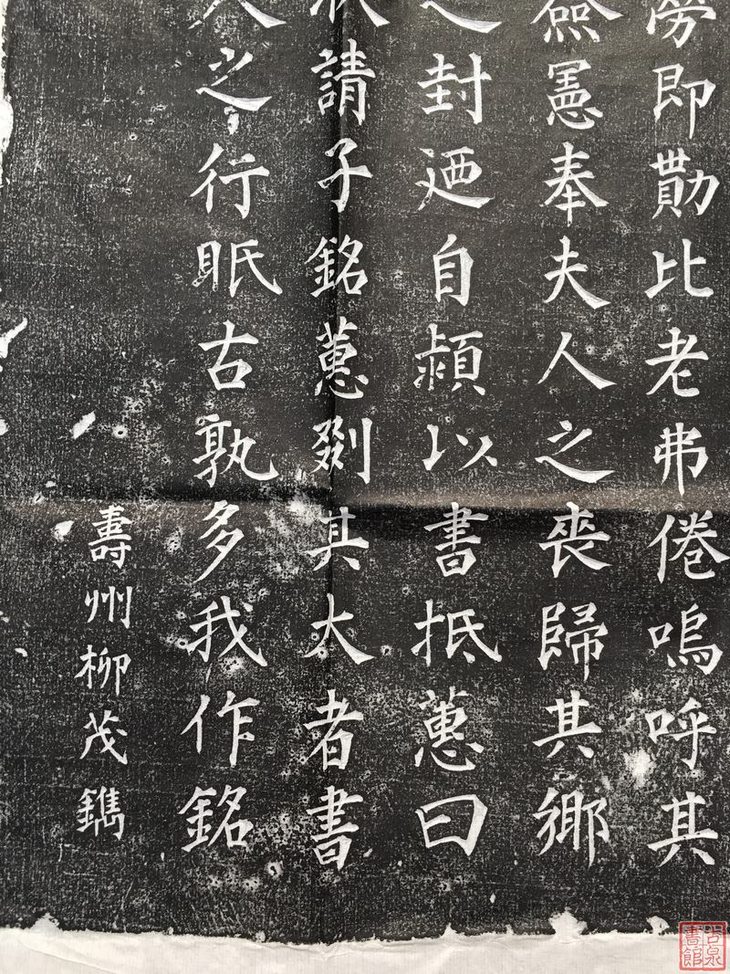 勞即勩比老弗倦嗚呼其
憲奉夫人之喪歸其鄉
之封廼自潁以書抵蕙曰
狀請子銘蕙剟其大者書
人之行眂古孰多我作銘
壽州柳茂鐫
泉書館